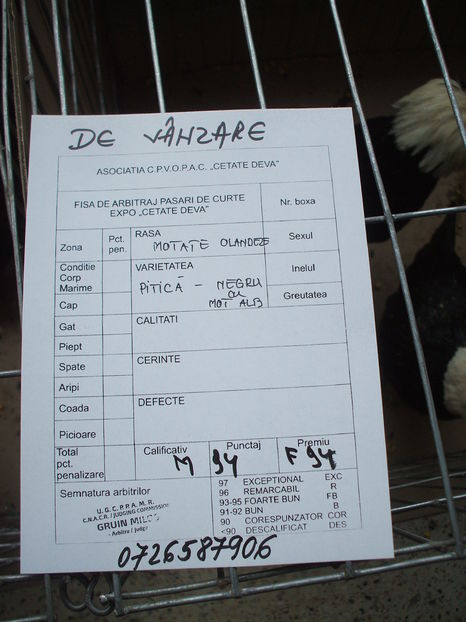 DE VÂNZARE
ASOCIATIA C.P.V.O.P.A.C. „CETATE DEVA”
FISA DE ARBITRAJ PASARI DE CURTE
EXPO „CETATE DEVA”
Nr. boxa
Zona
Pct.
pen.
RASA
MOTATE OLANDEZE
Sexul
Conditie
Corp
Marime
VARIETATEA
PITICĂ - NEGRU
CU
MOT ALB
Inelul
Greutatea
Cap
Gat
CALITATI
Piept
Spate
CERINTE
Aripi
Coada
DEFECTE
Picioare
Total
pct.
penalizare
Calificativ
M
Punctaj
94
Premiu
F 94
Semnatura arbitrilor
U.G.C.P.P.A.M.R.
C.N.A.C.R. / JUDGING COMMISSION
GRUIN MILOS
- Arbitru / judger
97 EXCEPTIONAL EXC
96 REMARCABIL R
93-95 FOARTE BUN FB
91-92 BUN B
90 CORESPUNZATOR COR
<90 DESCALIFICAT DES
0726587906